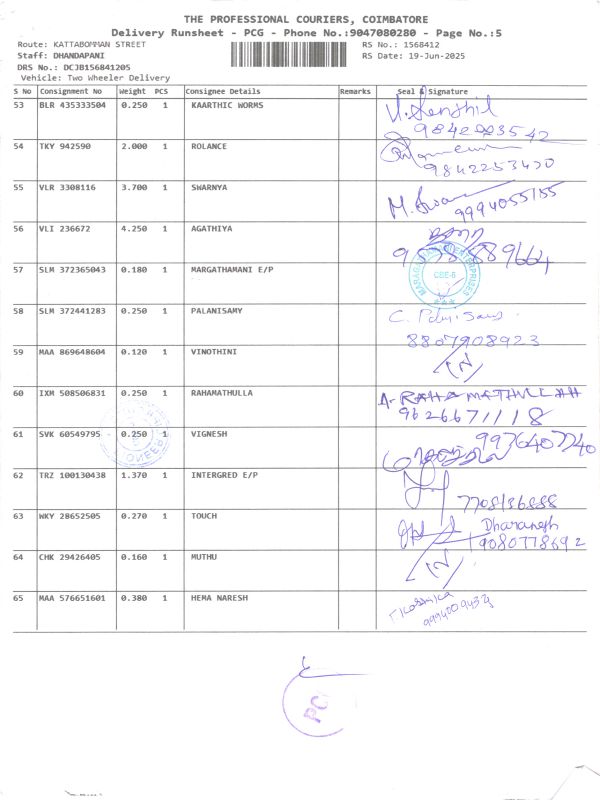 THE PROFESSIONAL COURIERS, COIMBATORE
Delivery Runsheet - PCG - Phone No.:9047080280 - Page No.:5
Route: KATTABOMMAN STREET RS No.: 1568412
Staff: DHANDAPANI RS Date: 19-Jun-2025
DRS No.: DCJB156841205
Vehicle: Two Wheeler Delivery
S No Consignment No Weight PCS Consignee Details Remarks Seal & Signature
53 BLR 435333504 0.250 1 KAARTHIC WORMS
54 TKY 942590 2.000 1 ROLANCE
9842253470
55 VLR 3308116 3.700 1 SWARNYA
9994055155
56 VLI 236672 4.250 1 AGATHIYA
57 SLM 372365043 0.180 1 MARGATHAMANI E/P
CBE-6
58 SLM 372441283 0.250 1 PALANISAMY
8807908923
59 MAA 869648604 0.120 1 VINOTHINI
60 IXM 508506831 0.250 1 RAHAMATHULLA A. RAHAMATHULLAH
9626671118
61 SVK 60549795 0.250 1 VIGNESH 9976407740
62 TRZ 100130438 1.370 1 INTERGRED E/P
7708136888
63 WKY 28652505 0.270 1 TOUCH Dharanesh
9080778692
64 CHK 29426405 0.160 1 MUTHU
65 MAA 576651601 0.380 1 HEMA NARESH
PC